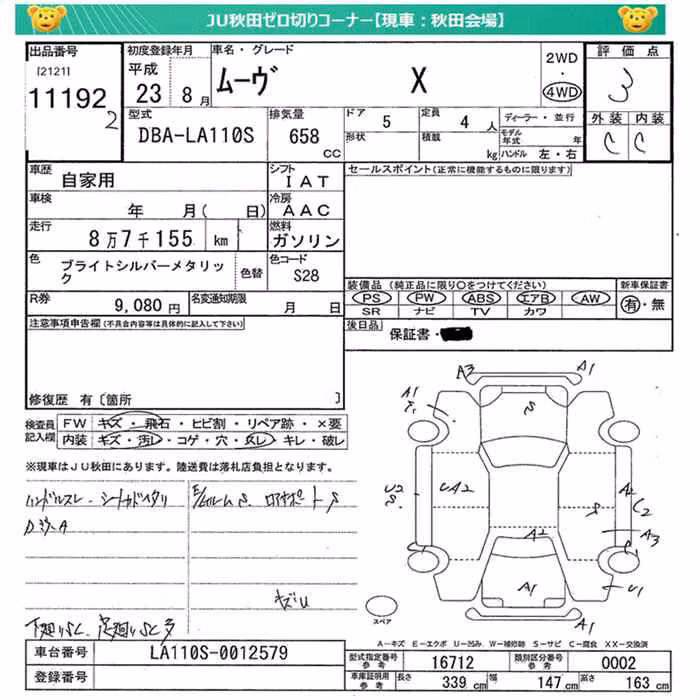 JU秋田ゼロ切りコーナー【現車：秋田会場】
出品番号 初度登録年月 車名・グレード 2WD 評価点
[2121] 平成 ムーヴ X ・ 3
11192 23 8月 4WD 外装 内装
2 C C
型式 排気量 ドア 5 定員 4人 ディーラー・並行
DBA-LA110S 658 CC 形状 積載 kg モデル年式 年
ハンドル 左・右
車歴 自家用 シフト IAT セールスポイント(正常に機能するものに限ります)
車検 年 月( 日) 冷房 AAC
走行 8万7千155 km 燃料 ガソリン
色 ブライトシルバーメタリック 色替 色コード S28
装備品 (純正品に限り○をつけてください) 新車保証書
PS PW ABS エアB AW 有・無
SR ナビ TV カワ
R券 9,080円 名変通知期限 月 日
後日品 保証書・
注意事項申告欄(不具合内容等は具体的に記入して下さい)
修復歴 有〔箇所 〕
検査員記入欄 FW キズ・飛石・ヒビ割・リペア跡・×要
内装 キズ・汚レ・コゲ・穴・スレ・キレ・破レ
※現車はJU秋田にあります。陸送費は落札店負担となります。
ハンドルスレ、シート
キズU
下廻りSC、足廻りSC多
A3 A1
A1 S
U2 S UA2 A2 C2
S A3
A2 C1
A1 U1
A1
スペア
A-キズ E-エクボ U-凹み W-補修跡 S-サビ C-腐食 XX-交換済
車台番号 LA110S-0012579 型式指定番号 参考 16712 類別区分番号 参考 0002
登録番号 車庫証明用 参考 長さ 339cm 幅 147cm 高さ 163cm